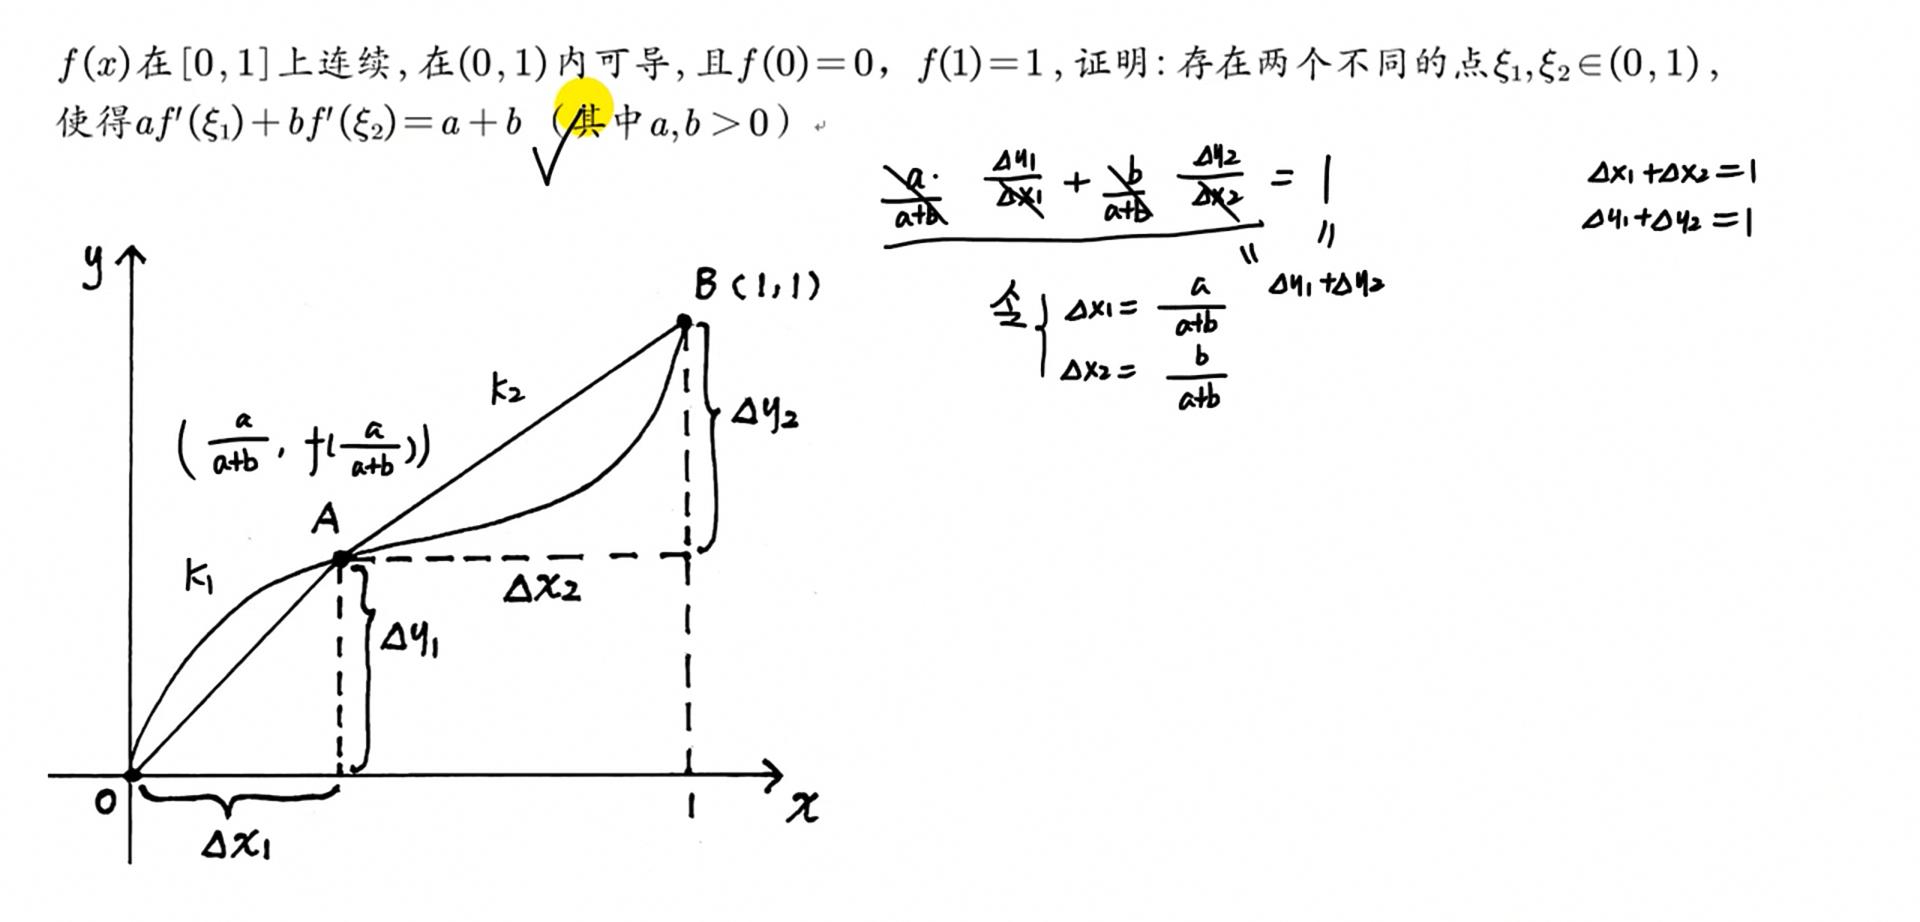 f(x)在[0,1]上连续,在(0,1)内可导,且f(0)=0, f(1)=1,证明:存在两个不同的点ξ₁,ξ₂∈(0,1),
使得af′(ξ₁)+bf′(ξ₂)=a+b (其中a,b>0)
a/(a+b) · Δy₁/Δx₁ + b/(a+b) Δy₂/Δx₂ = 1
Δx₁+Δx₂=1
Δy₁+Δy₂=1
= =
Δy₁+Δy₂
令{ Δx₁= a/(a+b)
Δx₂= b/(a+b)
y
B(1,1)
k₂
Δy₂
(a/(a+b), f(a/(a+b)))
A
k₁
Δx₂
Δy₁
O
1
x
Δx₁